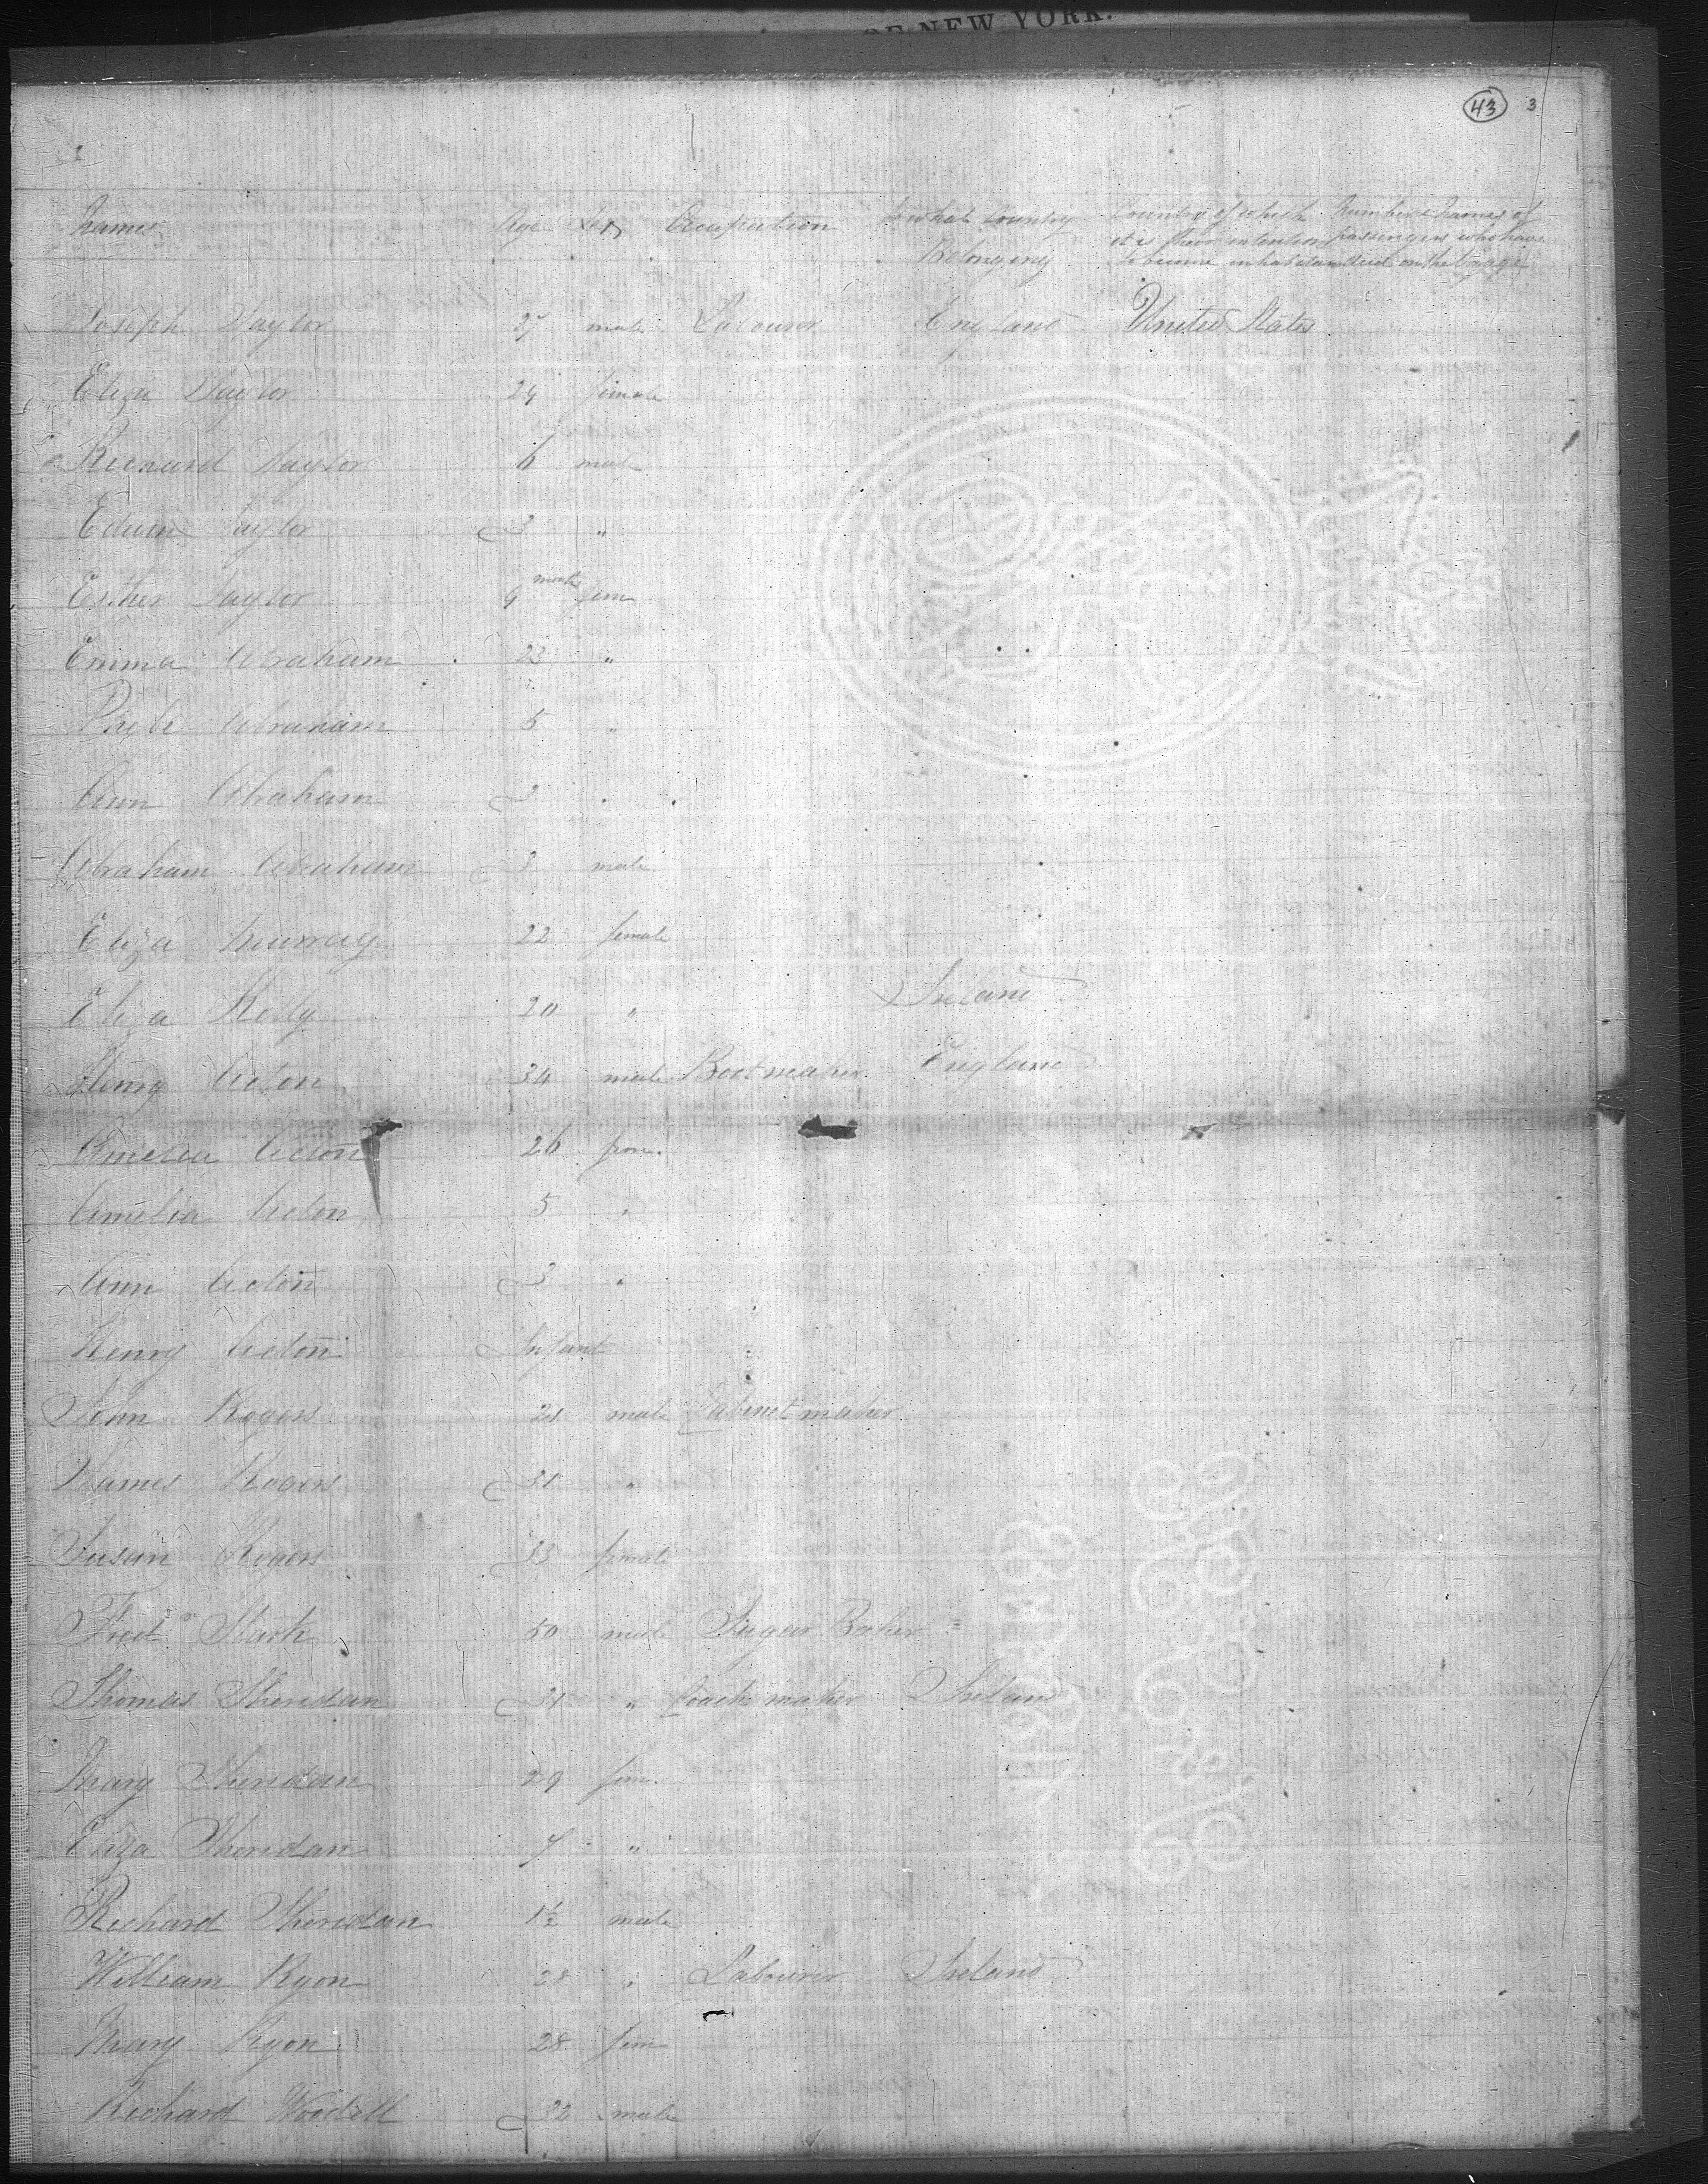 OF NEW YORK.
43 3
Names Age Sex Occupation to what Country Belonging Country of which it is their intention to become inhabitants Number & Names of passengers who have died on the Voyage
Joseph Taylor 27 male Labourer England United States
Eliza Taylor 24 female
Richard Taylor 6 male
Edwin Taylor 3 "
Esther Taylor 9 month fem
Emma Abraham 23 "
Phebe Abraham 5 "
Ann Abraham 3 "
Abraham Abraham 3 male
Eliza Murray 22 female
Eliza Kelly 20 " Ireland
Henry Acton 34 male Bootmaker England
Amelia Acton 26 fem.
Amelia Acton 5 "
Ann Acton 3 "
Henry Acton Infant
John Rogers male Cabinet maker
James Rogers 31 "
Susan Rogers 33 female
Fred Stark 50 male Sugar Baker
Thomas Sheridan 31 " Coach maker Ireland
Mary Sheridan 29 fem.
Eliza Sheridan 7 "
Richard Sheridan 1½ male
William Ryon 28 " Labourer Ireland
Mary Ryon 28 fem
Richard Woodell 32 male